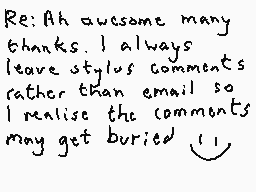 Re: Ah awesome many
thanks. I always
leave stylus comments
rather than email so
I realise the comments
may get buried